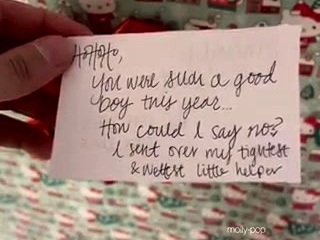 HoHoHo,
You were such a good
boy this year...
How could I say no?
I sent over my tightest
& wettest little helper
molly-pop